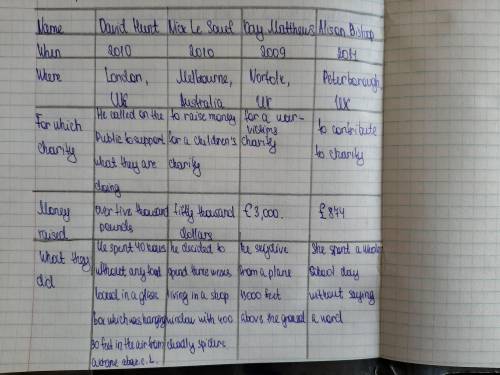 Name David Hunt Nick Le Souef Day Matthews Alison Bishop
When 2010 2010 2009 2011
Where London, Melbourne, Norfolk, Peterborough,
UK Australia UK UK
For which He called on the to raise money for a war- to contribute
charity Public to support for a children's victims to charity
what they are charity charity
doing
Money over five thousand fifty thousand £3,000. £874
raised pounds dollars
What they He spent 40 hours he decided to he skydive She spent a whole
did without any food spend three weeks from a plane school day
locked in a glass living in a shop 13000 feet without saying
box which was hanging window with 400 above the ground a word
30 feet in the air from deadly spiders
a crane above